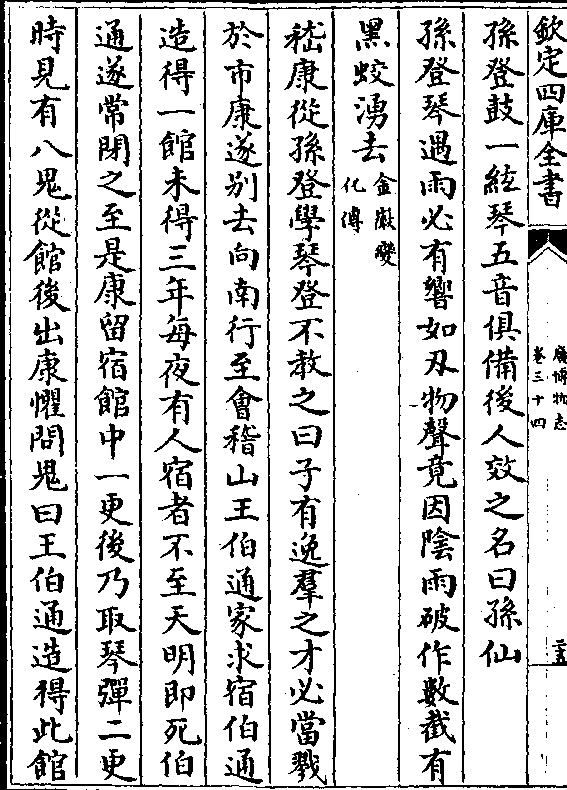 欽定四庫全書
廣博物志
卷三十四
二十五
孫登鼓一絃琴五音俱備後人效之名曰孫仙
孫登琴遇雨必有響如刃物聲竟因陰雨破作數截有
黑蛟湧去金徽變
化傳
嵇康從孫登學琴登不教之曰子有逸羣之才必當戮
於市康遂别去向南行至會稽山王伯通家求宿伯通
造得一館未得三年每夜有人宿者不至天明即死伯
通遂常閉之至是康留宿館中一更後乃取琴彈二更
時見有八鬼從館後出康懼問鬼曰王伯通造得此館